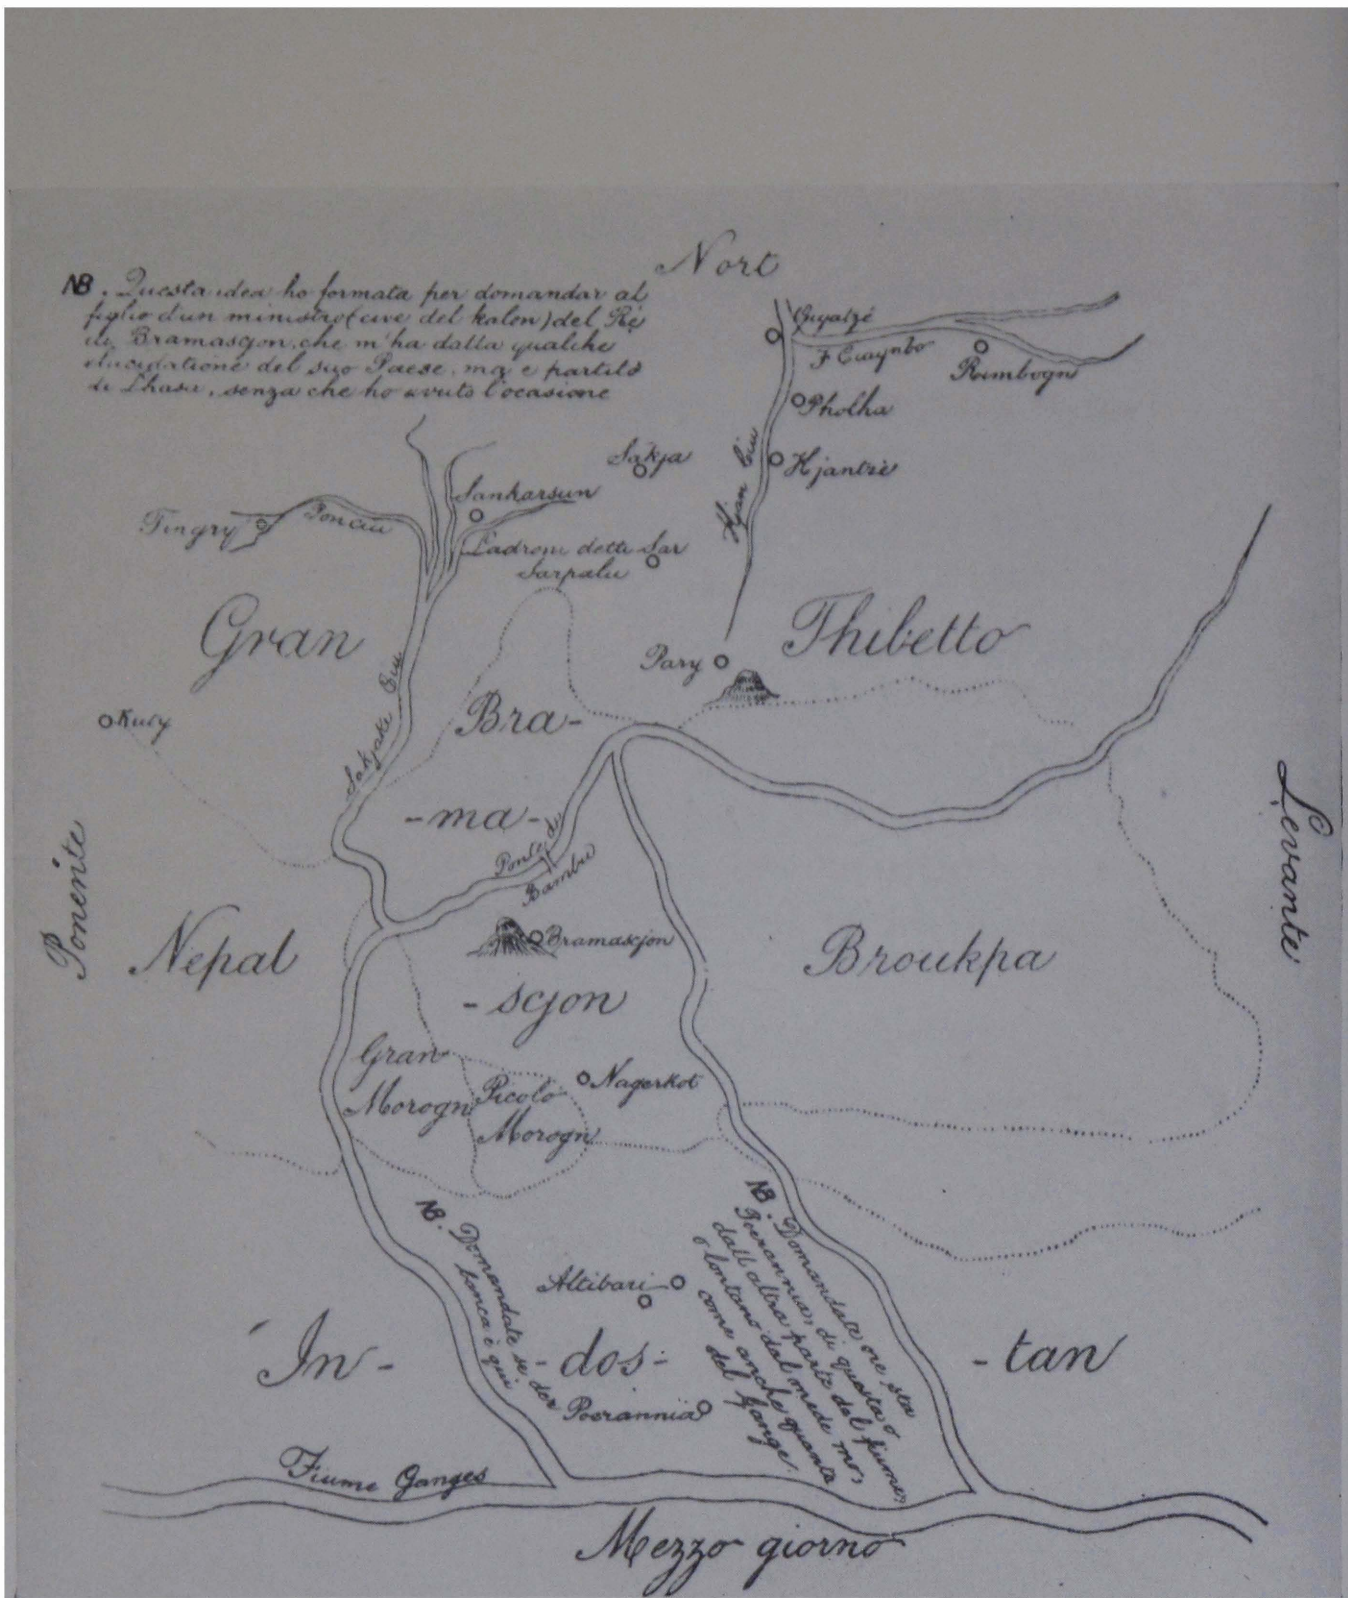 Nort
NB. Questa idea ho formata per domandar al
figlio d'un ministro (cive del kalon) del Rè
di Bramascjon, che m'ha datta qualche
elucidatione del suo Paese, ma e partito
di Lhasa, senza che ho avuto l'ocasione
F
Rimbogn
Pholha
Sakja
Hjantzè
Sankarsun
Tingry
Ponciu
Padroni detti Sar
Sarpalu
Gran
Thibetto
Pary
Sakjake Ciu
Kuty
Bra-
-ma-
Ponte d
Bambu
Levante
Ponente
Nepal
Bramascjon
Broukpa
-scjon
Gran
Morogn
Picolo
Morogn
Nagerkot
NB. Domandate se der
banca è qui
NB. Domandate ove sta
Poerannia, di questa o
dall altra parte del fiume,
o lontano dal mede mo,
come anche quanta
del Gange.
Altibari
In-
-dos-
-tan
Poerannia
Fiume Ganges
Mezzo giorno